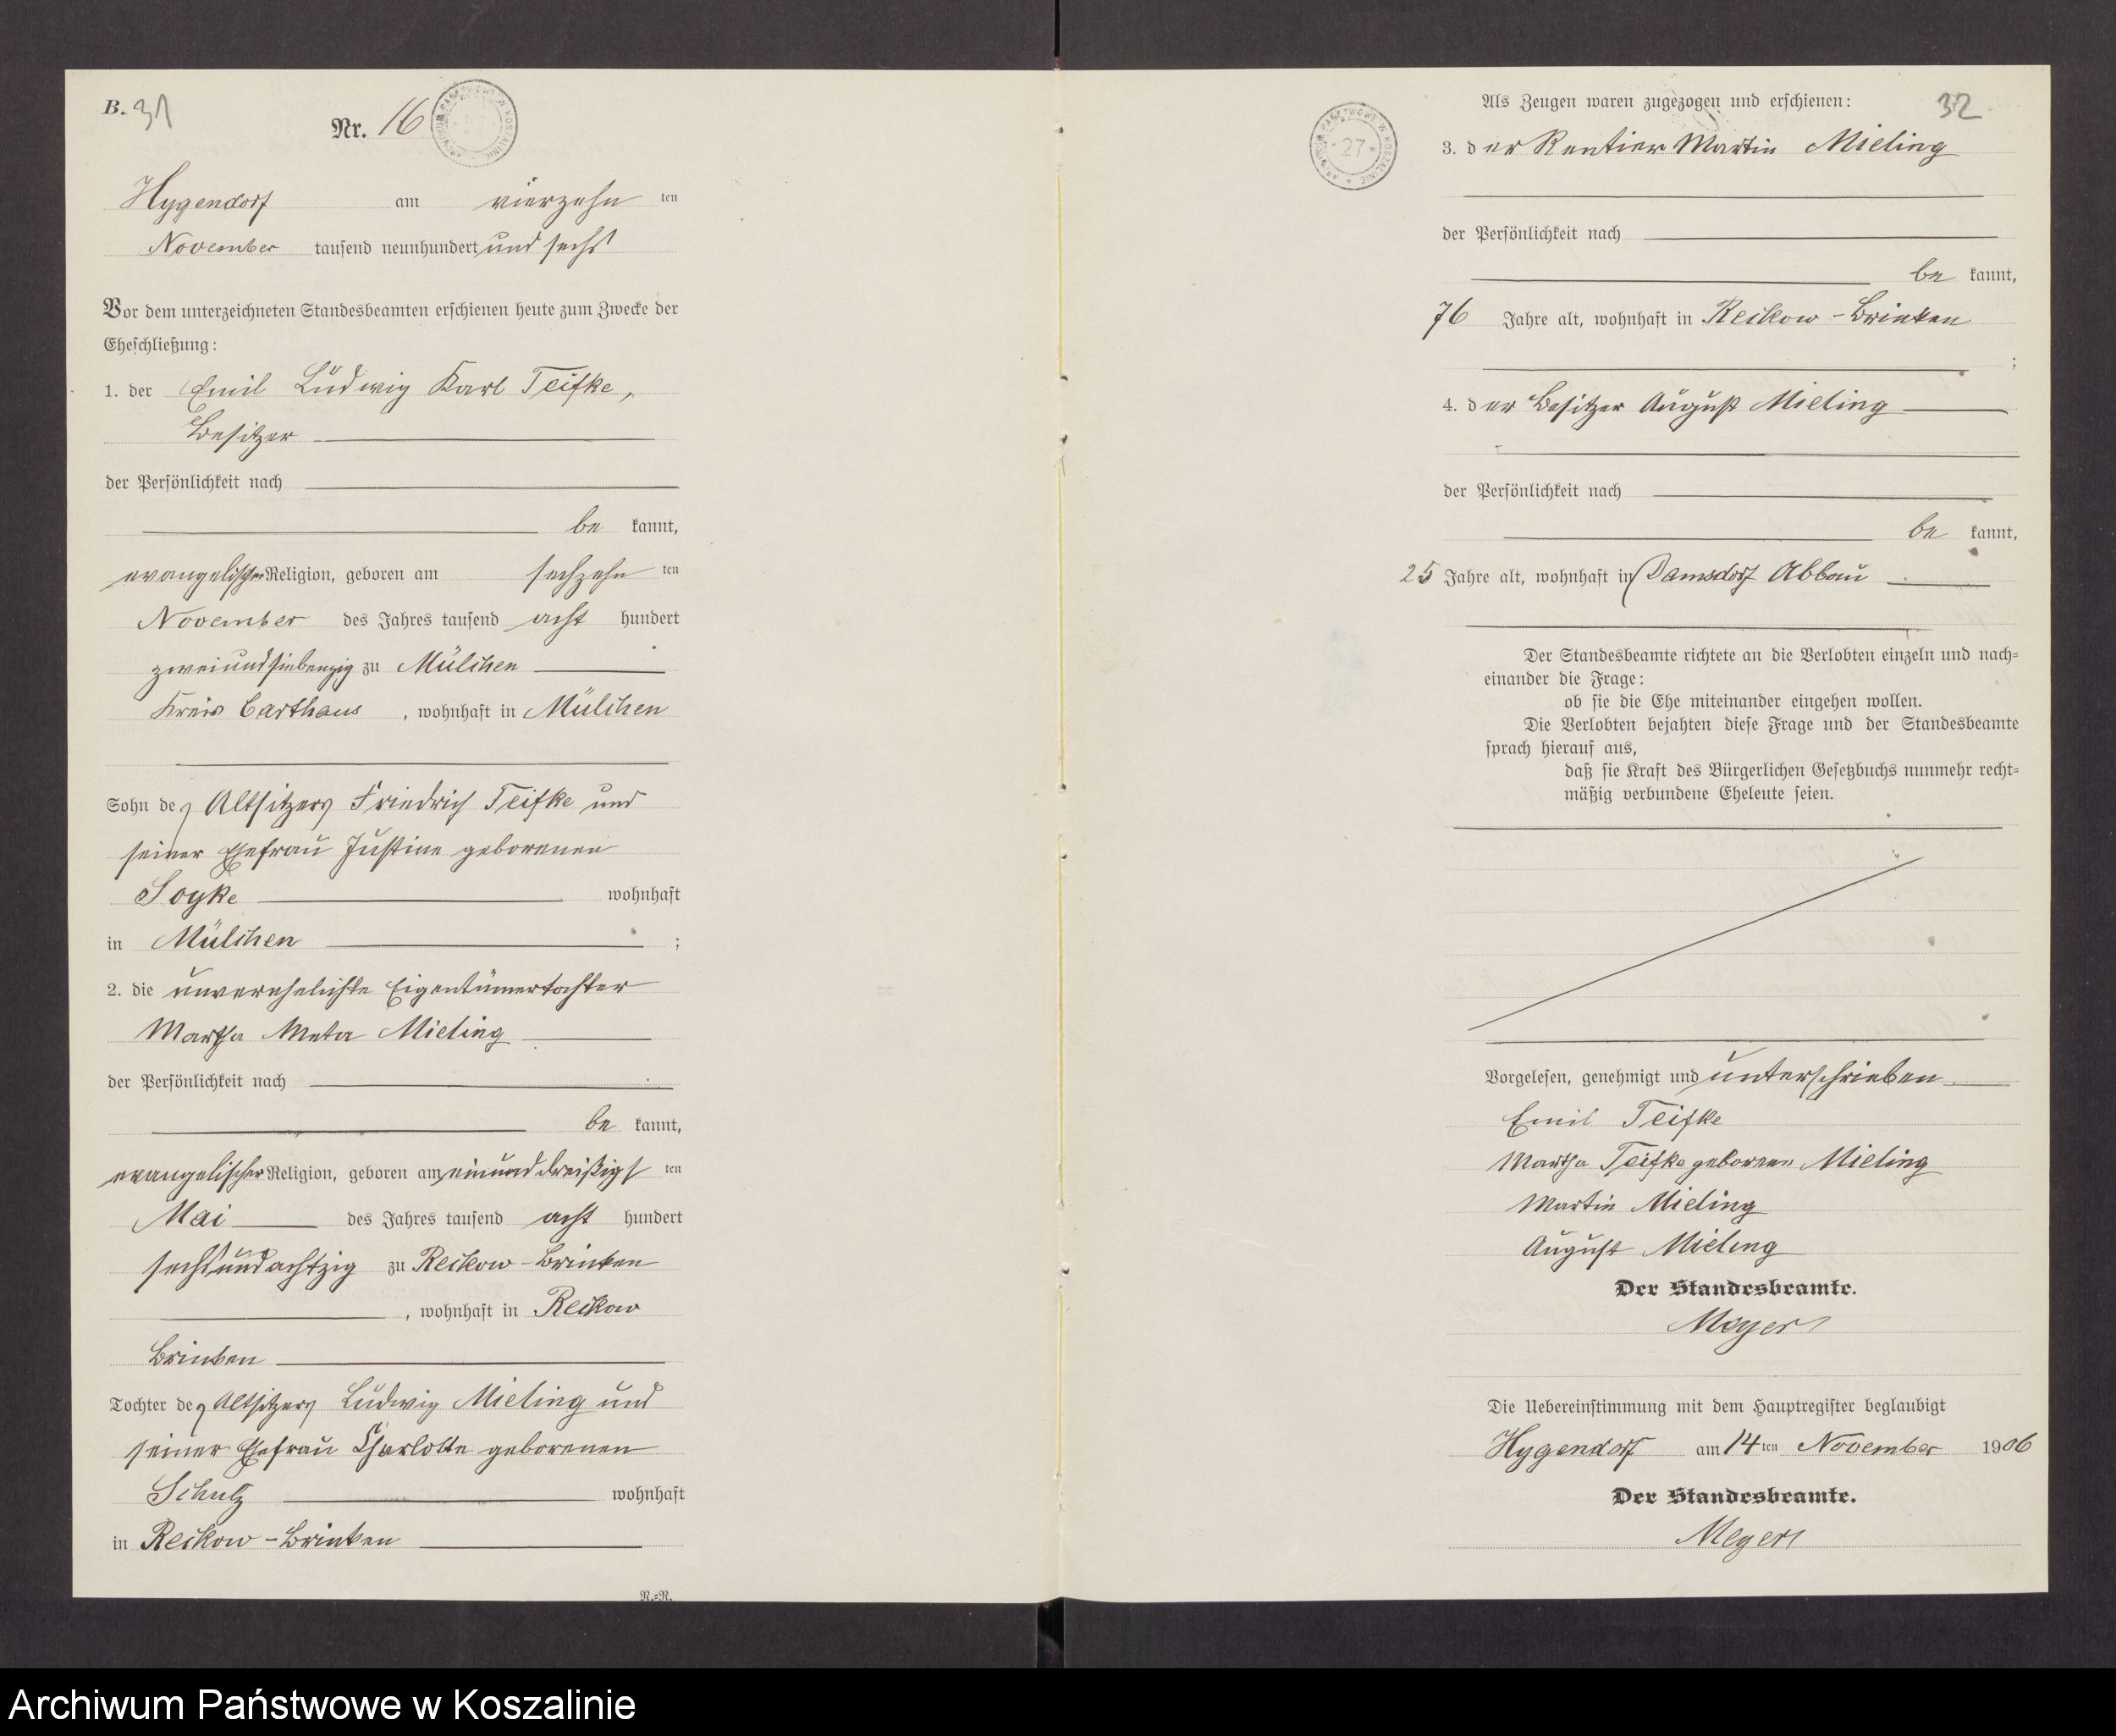 B. 31
Nr. 16
Hygendorf am vierzehn ten
November tausend neunhundert und sechs
Vor dem unterzeichneten Standesbeamten erschienen heute zum Zwecke der
Eheschließung:
1. der Emil Ludwig Karl Teifke,
Besitzer
der Persönlichkeit nach
be kannt,
evangelischer Religion, geboren am sechzehn ten
November des Jahres tausend acht hundert
zweiundsiebenzig zu Mülchen
Kreis Carthaus, wohnhaft in Mülchen
Sohn des Altsitzers Friedrich Teifke und
seiner Ehefrau Justine geborenen
Soyke wohnhaft
in Mülchen ;
2. die unverehelichte Eigentümertochter
Martha Meta Mieling
der Persönlichkeit nach
be kannt,
evangelischer Religion, geboren am einunddreißigs ten
Mai des Jahres tausend acht hundert
sechsundachtzig zu Reckow-Brinken
, wohnhaft in Reckow
Brinken
Tochter des Altsitzers Ludwig Mieling und
seiner Ehefrau Charlotte geborenen
Schulz wohnhaft
in Reckow-Brinken
N.-N.
Als Zeugen waren zugezogen und erschienen: 32
3. der Rentier Martin Mieling
27
der Persönlichkeit nach
be kannt,
76 Jahre alt, wohnhaft in Reckow-Brinken
;
4. der Besitzer August Mieling
der Persönlichkeit nach
be kannt,
25 Jahre alt, wohnhaft in Damsdorf Abbau
Der Standesbeamte richtete an die Verlobten einzeln und nach=
einander die Frage:
ob sie die Ehe miteinander eingehen wollen.
Die Verlobten bejahten diese Frage und der Standesbeamte
sprach hierauf aus,
daß sie Kraft des Bürgerlichen Gesetzbuchs nunmehr recht=
mäßig verbundene Eheleute seien.
Vorgelesen, genehmigt und unterschrieben
Emil Teifke
Martha Teifke geborene Mieling
Martin Mieling
August Mieling
Der Standesbeamte.
Meyer
Die Uebereinstimmung mit dem Hauptregister beglaubigt
Hygendorf am 14ten November 1906
Der Standesbeamte.
Meyer
Archiwum Państwowe w Koszalinie